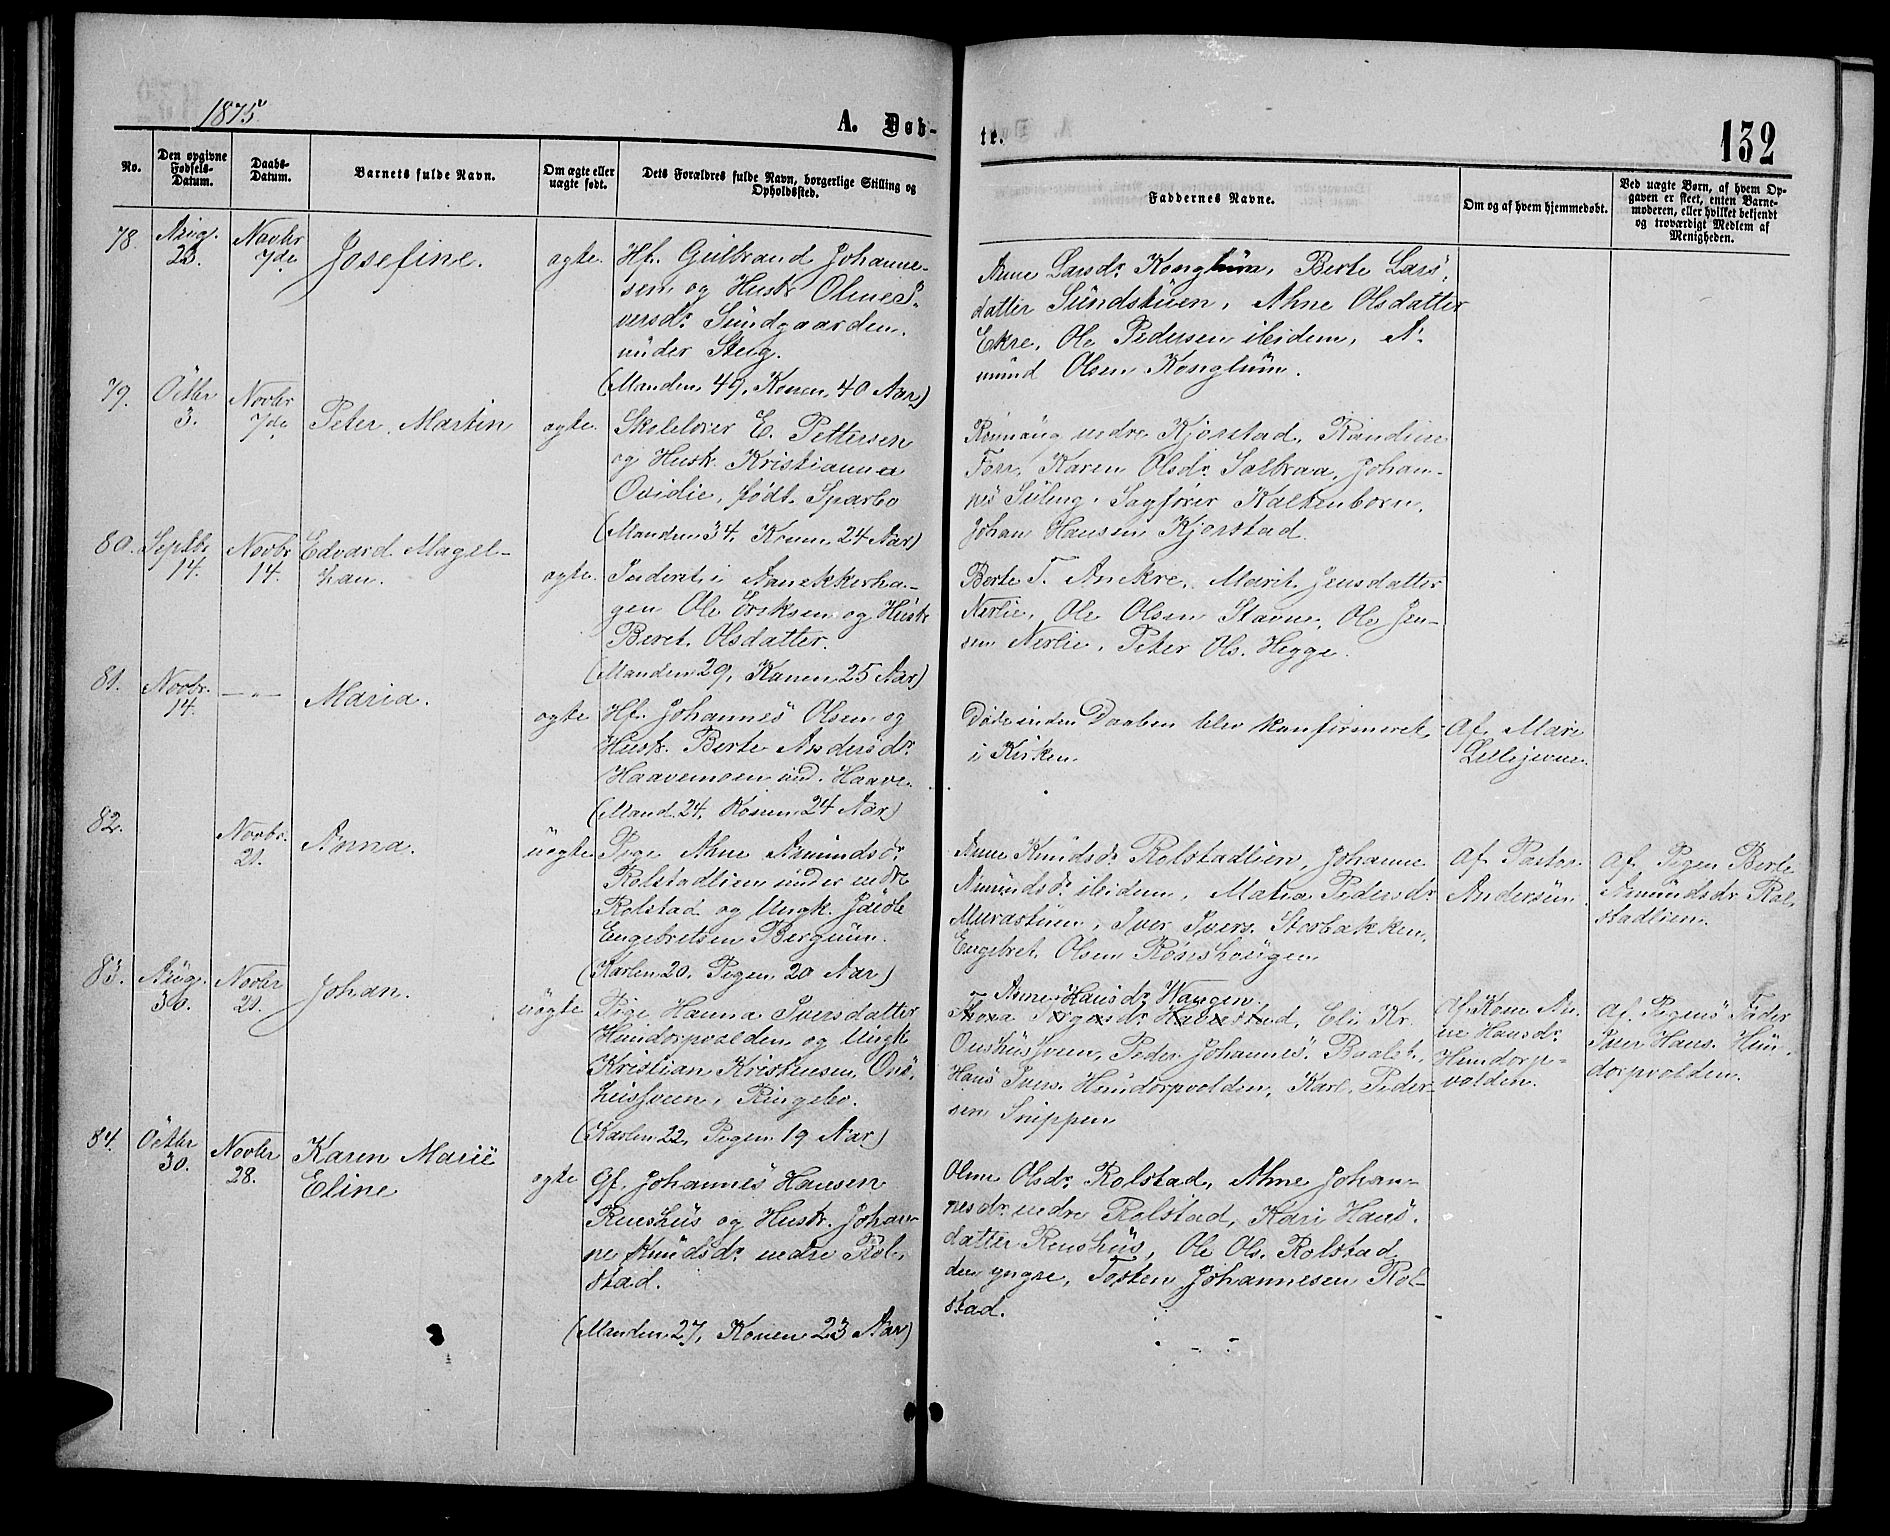 1875
A. Døb-
te.
132
No.
Den opgivne Fødsels-Datum.
Daabs-Datum.
Barnets fulde Navn.
Om ægte eller uægte født.
Dets Forældres fulde Navn, borgerlige Stilling og Opholdssted.
Faddernes Navne.
Om og af hvem hjemmedøbt.
Ved uægte Børn, af hvem Op-
gaven er skeet, enten Barne-
moderen, eller hvilket bekjendt
og troværdigt Medlem af
Menigheden.
78.
Aug. 23.
Novbr 7de
Josefine.
ægte.
Hf. Gulbrand Johanne-
sen og Hustr Oline I-
versdr Sundgaarden
under Steig.
(Manden 49, Konen 40 Aar)
Anne Larsdr Konglum, Berte Lars-
datter Sundstuen, Ahne Olsdatter
Ekre, Ole Pedersen ibidem, A-
mund Olsen Konglum.
79.
Octbr 3.
Novbr 7de
Peter Martin
ægte.
Skolelærer E. Pettersen
og Hustr. Kristianna
Ovidie, født Sparbo
(Manden 34, Konen 24 Aar)
nedre Kjorstad, Randine
Karen Olsdr Solbraa, Johan-
nes Suling, Sagfører Kaltenborn,
Johan Hansen Kjorstad.
80.
Septbr 14.
Novbr 14.
Edvard Magel-
han.
ægte.
Inderst i
gen Ole Eriksen og Hustr
Beret Olsdatter.
(Manden 29, Konen 25 Aar)
Berte T. Ankre, Marit Jensdatter
Nerlie, Ole Olsen Stavne, Ole Jen-
sen Nerlie, Peter Ols. Hegge.
81.
Novbr. 14.
— " —
Maria.
ægte
Hf. Johannes Olsen og
Hustr. Berte Andersdr
Haavemoen und. Haave.
(Mand. 24, Konen 24 Aar)
Døde inden Daaben blev konfirmeret
i Kirken.
Af Mari
82.
Novbr. 21.
Anna.
uægte
Pige Ahne Amundsdr
Rolstadlien under nedre
Rolstad og Ungk. Jakob
Engebretsen Bergum.
(Karlen 20, Pigen 20 Aar)
Anne Knudsdr Rolstadlien, Johanne
Amundsdr ibidem, Matia Pedersdr
Murastuen, Iver Ivers. Storbakken,
Engebret Olsen Rønshaugen
Af Pastor
Andersen.
Af Pigen Berte
Amundsdr Rol-
stadlien.
83.
Aug. 30.
Novbr 21.
Johan.
uægte
Pige Hanna Iversdatter
Hundorpvolden og Ungk
Kristian Kristensen Ons-
hussveen, Ringebo.
(Karlen 22, Pigen 19 Aar)
- Anne Hansdr Wangen.
Thora Torgersdr Havrstad, Eli Kr.
Onshussveen, Peder Johannes. Baalst.,
Hans Ivers. Hundorpvolden, Karl Peder-
sen Snippen
Af Kone An-
ne Hansdr
Hundorp-
volden.
Af Pigens Fader
Iver Hans. Hun-
dorpvolden.
84.
Octbr 30.
Novbr 28.
Karen Marie
Eline
ægte
Gf. Johannes Hansen
Renshus og Hustr. Johan-
ne Knudsdr nedre Rol-
stad.
(Manden 27, Konen 23 Aar)
Oline Olsdr Rolstad, Ahne Johan-
nesdr nedre Rolstad, Kari Hans-
datter Renshus, Ole Ols. Rolstad
den yngre, Tosten Johannesen Rol-
stad.